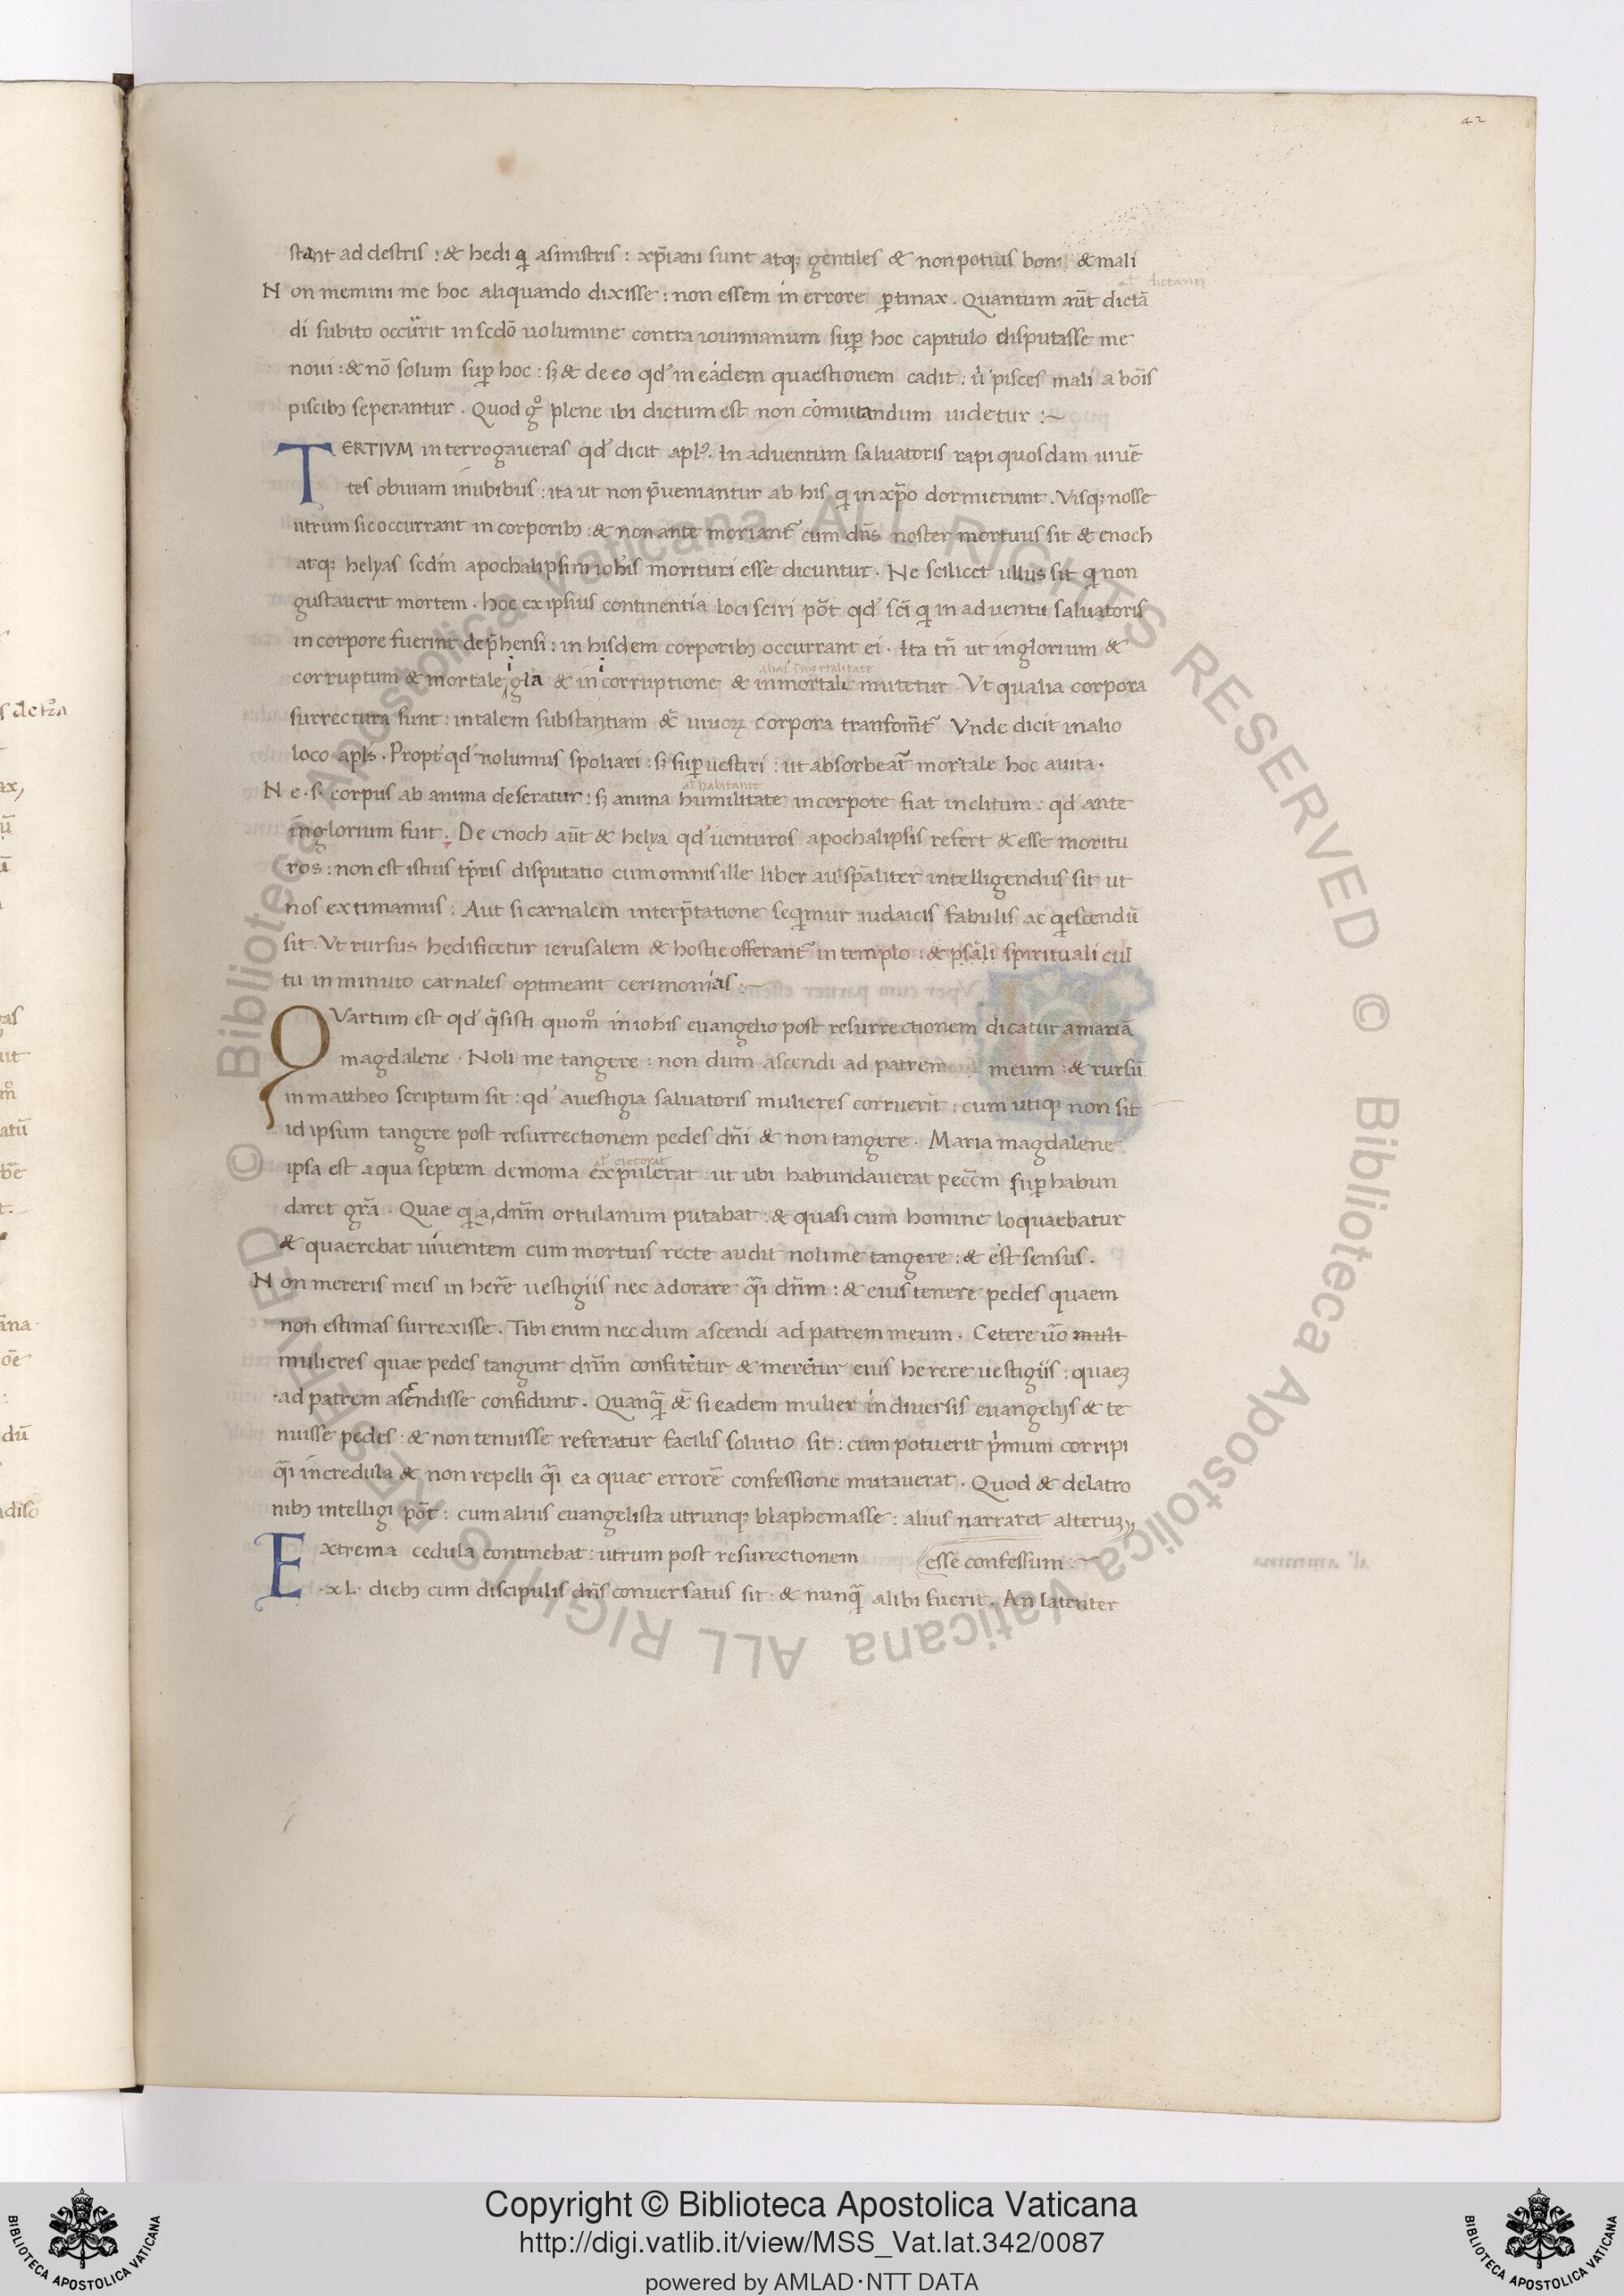 42
stant ad destris : & hedi qi asinistris : xp̄iani sunt atq; gentiles & non potius boni & mali
al' dictanti
Non memini me hoc aliquando dixisse : non essem in errore ꝑtinax . Quantum aūt dictā
di subito occurrit in scdō uolumine contra iouinianum suꝑ hoc capitulo disputasse me
novi : & nō solum suꝑ hoc : sꝫ & de eo qd' in eadem quaestionem cadit : u͛ pisces mali a boīs
piscibꝫ seperantur . Quod gͦ plene ibi dictum est non cōmutandum uidetur :~
TERTIVM interrogaueras qd' dicit apl's . In adventum saluatoris rapi quosdam uiuē
tes obuiam inubibus : ita ut non p̄ueniantur ab his qi in xp̄o dormierunt . Visq; nosse
utrum sic occurrant in corporibꝫ : & non ante moriant᷑ cum dn̄s noster mortuus sit & enoch
atq; helyas scdm̄ apochalipsim iohis morituri esse dicuntur . Ne scilicet ullus sit qi non
gustauerit mortem . hoc ex ipsius continentia loci sciri pōt qd' scī qi in adventu saluatoris
in corpore fuerint dep̄hensi : in hisdem corporibꝫ occurrant ei . Ita tn̄ ut inglorium &
alias īmortalitate
corruptum & mortale gl̄a & in corruptione & inmortali mutetur . Vt qualia corpora
surrectura sunt : in talem substantiam &̄ uiuoꝝ corpora tranfom̄t᷑ Vnde dicit in alio
loco apl's . Propt' qd' nolumus spoliari : sꝫ suꝑ uestiri : ut absorbeat᷑ mortale hoc auita .
al' habitantē
Ne . s . corpus ab anima deseratur : sꝫ anima humilitate in corpore fiat inclitum : qd' ante
inglorium fuit . De enoch aūt & helya qd' uenturos apochalipsis refert & esse moritu
ros : non est istius tp̄ris disputatio cum omnis ille liber au' spāliter intelligendus sit ut
nos extimamus : Aut si carnalem interp̄tatione seqimur iudaicis fabulis ac qiescendū
sit . Vt rursus hedificetur ierusalem & hostie offerant᷑ in templo : & psāli spirituali cul
tu inminuto carnales optineant cerimonias :~
QVartum est qd' q̄sisti quom̊ in iohis euangelio post resurrectionem dicatur a mariā
magdalene . Noli me tangere : non dum ascendi ad patrem meum : & rursū
in mattheo scriptum sit : qd' auestigia saluatoris mulieres corruerīt : cum utiq; non sit
id ipsum tangere post resurrectionem pedes dn̄i & non tangere . Maria magdalene
al' eiecerat
ipsa est a qua septem demonia expulerat : ut ubi habundauerat peccm̄ suꝑ habun
daret gr̄a . Quae qi a dn̄m ortulanum putabat : & quasi cum homine loquaebatur
& quaerebat uiuentem cum mortuis recte audit noli me tangere : & est sensus .
Non mereris meis in her̄e uestigiis nec adorare q̄i dn̄m : & eius tenere pedes quaem
non estimas surrexisse . Tibi enim nec dum ascendi ad patrem meum . Cetere ūo mult
mulieres quae pedes tangunt dn̄m confitētur & merētur eius herere uestigiis : quaeꝫ
ad patrem ascēndisse confidunt . Quanq̄ &̄ si eadem mulier in diuersis euangelijs & te
nuisse pedes : & non tenuisse referatur facilis solutio sit : cum potuerit p̄mum corripi
q̄i incredula & non repelli q̄i ea quae errorē confessione mutauerat . Quod & delatro
nibꝫ intelligi pōt : cum alius euangelista utrunq; blaphemasse : alius narraret alteruꝫ
Extrema cedula continebat : utrum post resurectionem esse confessum :~
.xL. diebꝫ cum discipulis dn̄s conuersatus sit : & nunq̄ alibi fuerit . An latenter
Copyright © Biblioteca Apostolica Vaticana
http://digi.vatlib.it/view/MSS_Vat.lat.342/0087
powered by AMLAD·NTT DATA
BIBLIOTECA APOSTOLICA VATICANA
BIBLIOTECA APOSTOLICA VATICANA